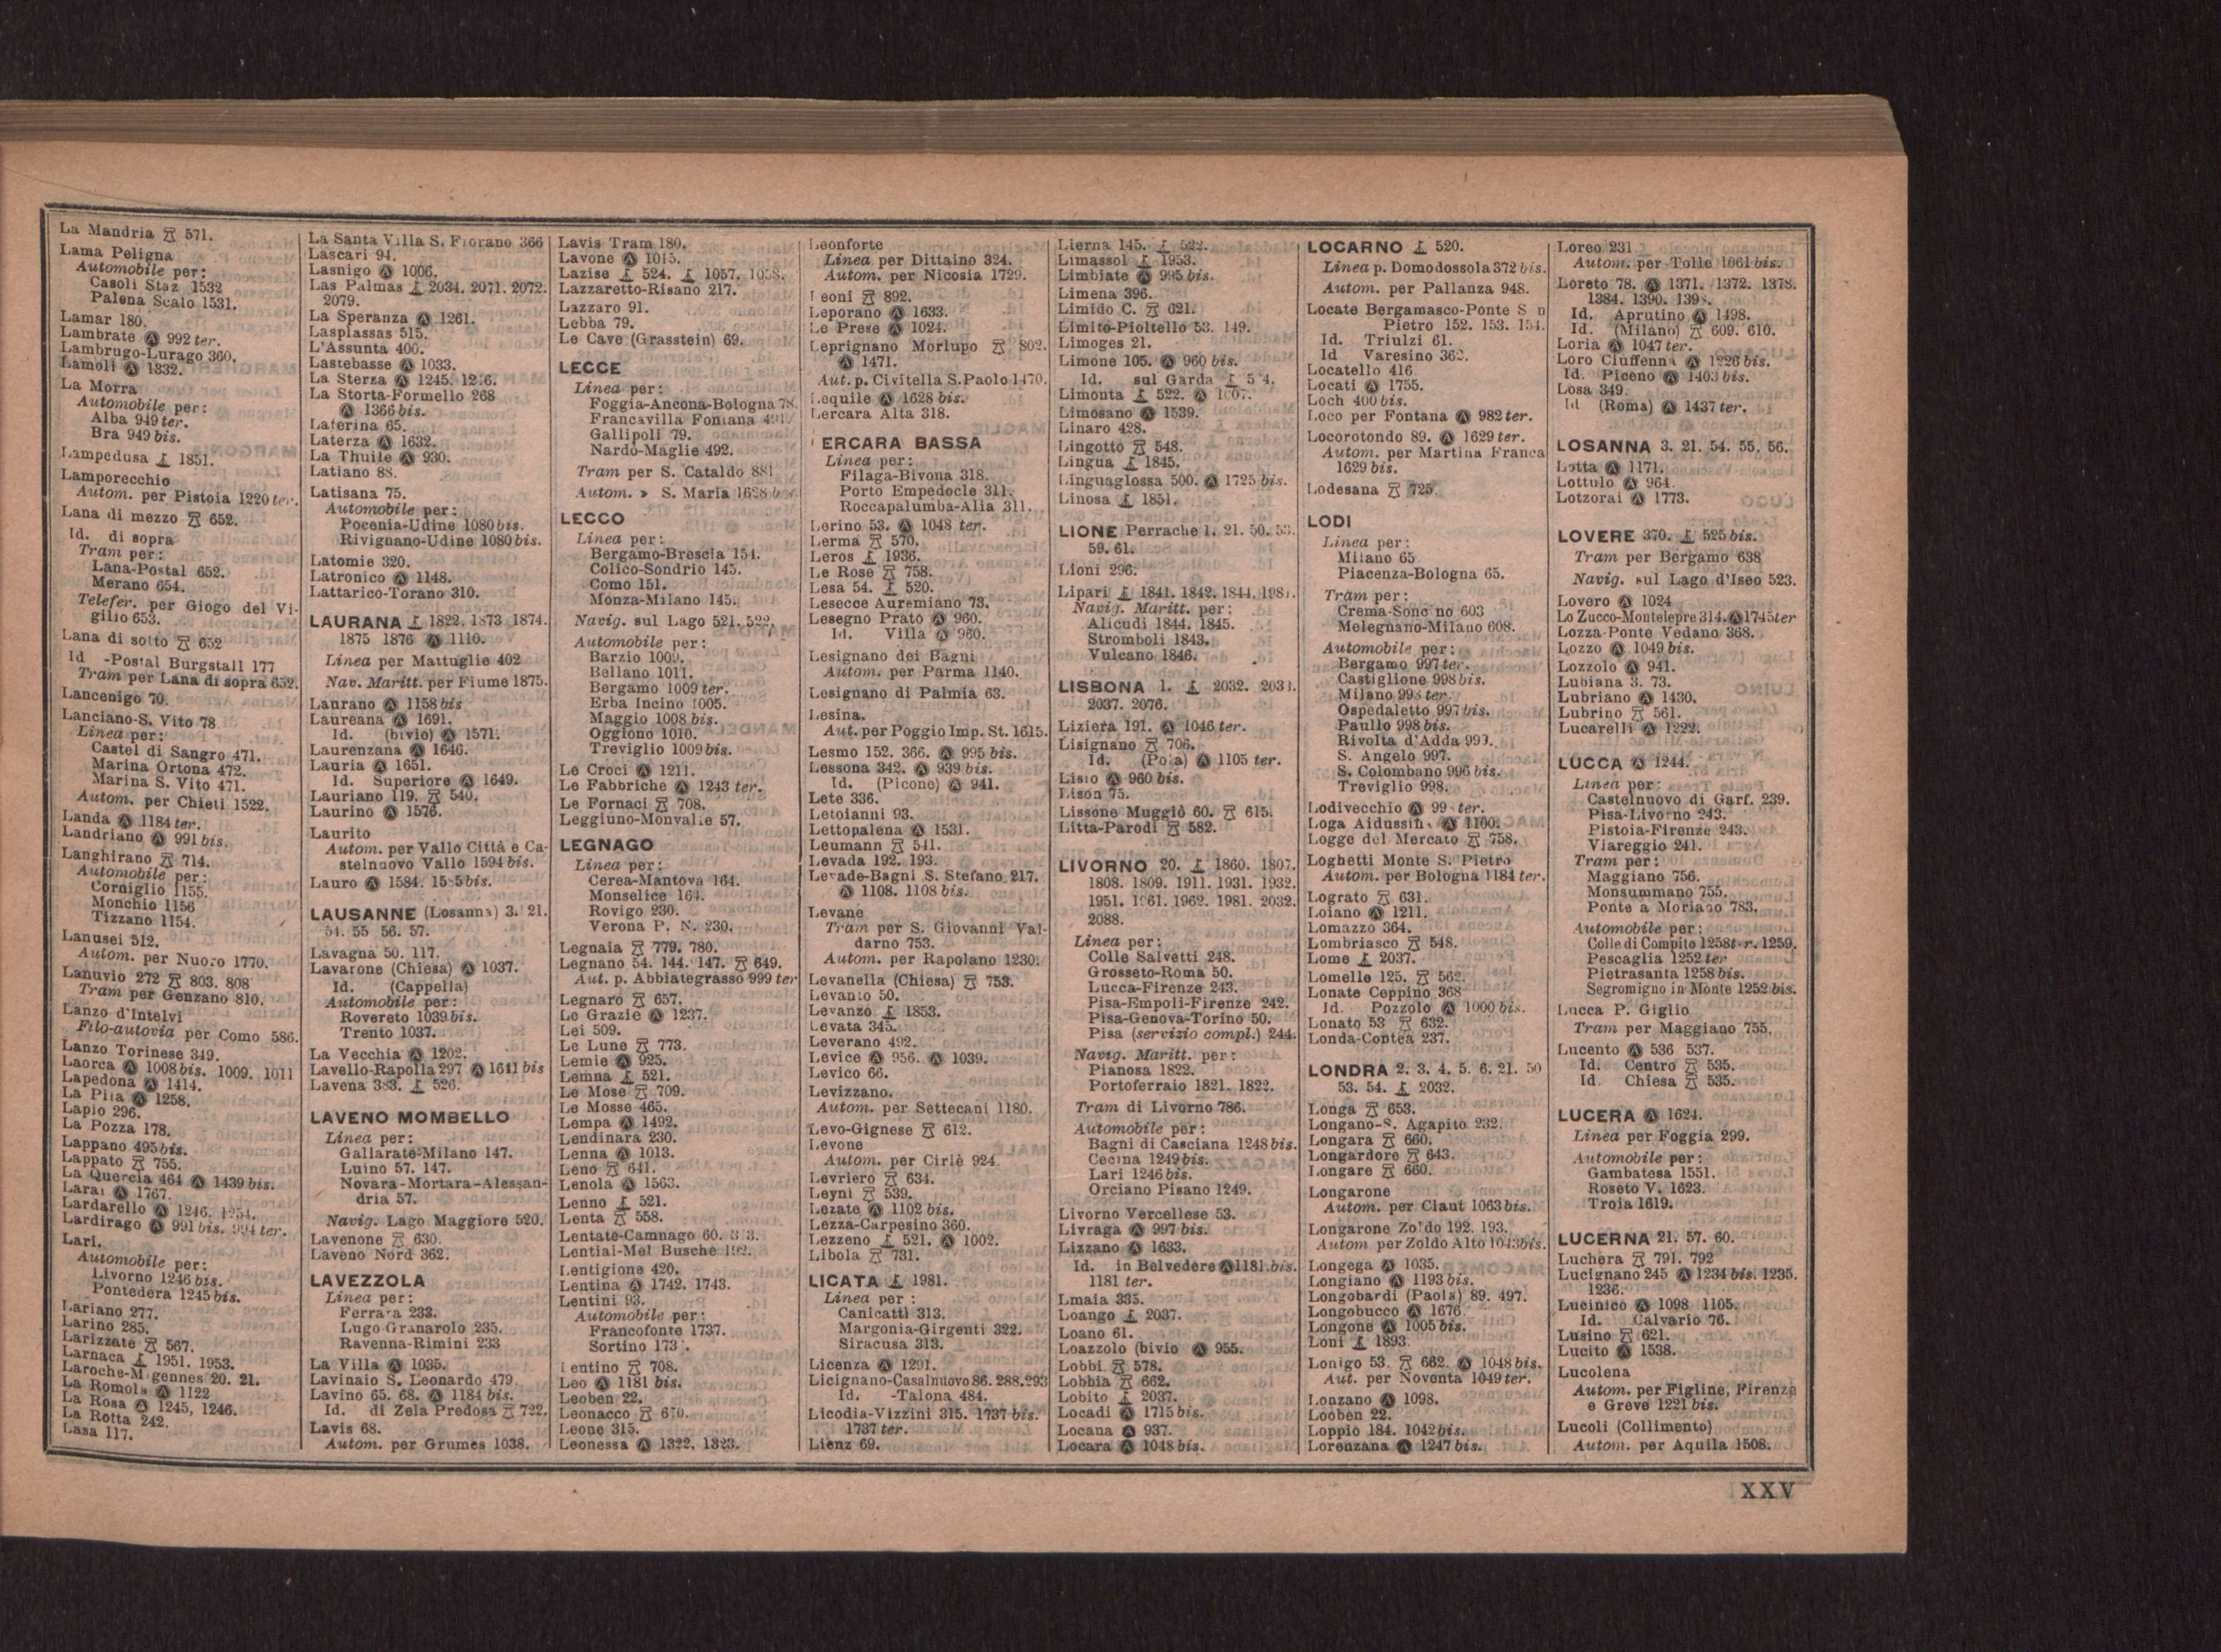 La Mandria 571.
Lama Peligna
Automobile per:
Casoli Staz 1532
Palena Scalo 1531.
Lamar 180.
Lambrate Ⓐ 992 ter.
Lambrugo-Lurago 360.
Lamoli Ⓐ 1332.
La Morra
Automobile per:
Alba 949 ter.
Bra 949 bis.
Lampedusa 1851.
Lamporecchio
Autom. per Pistoia 1220 ter.
Lana di mezzo 652.
Id. di sopra
Tram per:
Lana-Postal 652.
Merano 654.
Telefer. per Giogo del Vi-
gilio 653.
Lana di sotto 652
Id -Postal Burgstall 177
Tram per Lana di sopra 652.
Lancenigo 70.
Lanciano-S. Vito 78
Linea per:
Castel di Sangro 471.
Marina Ortona 472.
Marina S. Vito 471.
Autom. per Chieti 1522.
Landa Ⓐ 1184 ter.
Landriano Ⓐ 991 bis.
Langhirano 714.
Automobile per:
Corniglio 1155.
Monchio 1156
Tizzano 1154.
Lanusei 512.
Autom. per Nuoro 1770.
Lanuvio 272 803. 808
Tram per Genzano 810.
Lanzo d'Intelvi
Filo-autovia per Como 586.
Lanzo Torinese 349.
Laorca Ⓐ 1008 bis. 1009. 1011
Lapedona Ⓐ 1414.
La Pila Ⓐ 1258.
Lapio 296.
La Pozza 178.
Lappano 495 bis.
Lappato 755.
La Quercia 464 Ⓐ 1439 bis.
Laral Ⓐ 1767.
Lardarello Ⓐ 1246. 1254.
Lardirago Ⓐ 991 bis. 994 ter.
Lari.
Automobile per:
Livorno 1246 bis.
Pontedera 1245 bis.
Lariano 277.
Larino 285.
Larizzate 567.
Larnaca 1951. 1953.
Laroche-Migennes 20. 21.
La Romola Ⓐ 1122
La Rosa Ⓐ 1245, 1246.
La Rotta 242.
Lasa 117.
La Santa Villa S. Fiorano 366
Lascari 94.
Lasnigo Ⓐ 1006.
Las Palmas 2034. 2071. 2072.
2079.
La Speranza Ⓐ 1261.
Lasplassas 515.
L'Assunta 400.
Lastebasse Ⓐ 1033.
La Sterza Ⓐ 1245. 1246.
La Storta-Formello 268
Ⓐ 1366 bis.
Laterina 65.
Laterza Ⓐ 1632.
La Thuile Ⓐ 930.
Latiano 88.
Latisana 75.
Automobile per:
Pocenia-Udine 1080 bis.
Rivignano-Udine 1080 bis.
Latomie 320.
Latronico Ⓐ 1148.
Lattarico-Torano 310.
LAURANA 1822. 1873 1874.
1875 1876 Ⓐ 1110.
Linea per Mattuglie 402
Nav. Maritt. per Fiume 1875.
Laurano Ⓐ 1158 bis
Laureana Ⓐ 1691.
Id. (bivio) Ⓐ 1571.
Laurenzana Ⓐ 1646.
Lauria Ⓐ 1651.
Id. Superiore Ⓐ 1649.
Lauriano 119. 540.
Laurino Ⓐ 1576.
Laurito
Autom. per Vallo Città e Ca-
stelnuovo Vallo 1594 bis.
Lauro Ⓐ 1584. bis.
LAUSANNE (Losanna) 3. 21.
54. 55 56. 57.
Lavagna 50. 117.
Lavarone (Chiesa) Ⓐ 1037.
Id. (Cappella)
Automobile per:
Rovereto 1039 bis.
Trento 1037.
La Vecchia Ⓐ 1202.
Lavello-Rapolla 297 Ⓐ 1641 bis
Lavena 383. 526.
LAVENO MOMBELLO
Linea per:
Gallarate-Milano 147.
Luino 57. 147.
Novara-Mortara-Alessan-
dria 57.
Navig. Lago Maggiore 520.
Lavenone 630.
Laveno Nord 362.
LAVEZZOLA
Linea per:
Ferrara 233.
Lugo Granarolo 235.
Ravenna-Rimini 233
La Villa Ⓐ 1035.
Lavinaio S. Leonardo 479
Lavino 65. 68. Ⓐ 1184 bis.
Id. di Zela Predosa 722.
Lavis 68.
Autom. per Grumes 1038.
Lavis Tram 180.
Lavone Ⓐ 1015.
Lazise 524. 1057. 1058.
Lazzaretto-Risano 217.
Lazzaro 91.
Lebba 79.
Le Cave (Grasstein) 69.
LECCE
Linea per:
Foggia-Ancona-Bologna 78.
Francavilla Fontana
Gallipoli 79.
Nardò-Maglie 492.
Tram per S. Cataldo 881
Autom. » S. Maria 1628 bis
LECCO
Linea per:
Bergamo-Brescia 154.
Colico-Sondrio 145.
Como 151.
Monza-Milano 145.
Navig. sul Lago 521. 522.
Automobile per:
Barzio 1009.
Bellano 1011.
Bergamo 1009 ter.
Erba Incino 1005.
Maggio 1008 bis.
Oggiono 1010.
Treviglio 1009 bis.
Le Croci Ⓐ 1211.
Le Fabbriche Ⓐ 1243 ter.
Le Fornaci 708.
Leggiuno-Monvalle 57.
LEGNAGO
Linea per:
Cerea-Mantova 164.
Monselice 164.
Rovigo 230.
Verona P. N. 230.
Legnaia 779. 780.
Legnano 54. 144. 147. 649.
Aut. p. Abbiategrasso 999 ter
Legnaro 657.
Le Grazie Ⓐ 1237.
Lei 509.
Le Lune 773.
Lemie Ⓐ 925.
Lemna 521.
Le Mose 709.
Le Mosse 465.
Lempa Ⓐ 1492.
Lendinara 230.
Lenna Ⓐ 1013.
Leno 641.
Lenola Ⓐ 1563.
Lenno 521.
Lenta 558.
Lentate-Camnago 60.
Lentiai-Mel Busche 192.
Lentigione 420.
Lentina Ⓐ 1742. 1743.
Lentini 93.
Automobile per:
Francofonte 1737.
Sortino
Lentino 708.
Leo Ⓐ 1181 bis.
Leoben 22.
Leonacco 670.
Leone 315.
Leonessa Ⓐ 1322. 1323.
Leonforte
Linea per Dittaino 324.
Autom. per Nicosia 1729.
Leoni 892.
Leporano Ⓐ 1633.
Le Prese Ⓐ 1024.
Leprignano Morlupo 802.
Ⓐ 1471.
Aut. p. Civitella S. Paolo 1470.
Lequile Ⓐ 1628 bis.
Lercara Alta 318.
ERCARA BASSA
Linea per:
Filaga-Bivona 318.
Porto Empedocle 311.
Roccapalumba-Alia 311.
Lerino 53. Ⓐ 1048 ter.
Lerma 570.
Leros 1936.
Le Rose 758.
Lesa 54. 520.
Lesecce Auremiano 73.
Lesegno Prato Ⓐ 960.
Id. Villa Ⓐ 960.
Lesignano dei Bagni
Autom. per Parma 1140.
Lesignano di Palmia 63.
Lesina.
Aut. per Poggio Imp. St. 1615.
Lesmo 152. 366. Ⓐ 995 bis.
Lessona 342. Ⓐ 939 bis.
Id. (Picone) Ⓐ 941.
Lete 336.
Letoianni 93.
Lettopalena Ⓐ 1531.
Leumann 541.
Levada 192. 193.
Levade-Bagni S. Stefano 217.
Ⓐ 1108. 1108 bis.
Levane
Tram per S. Giovanni Val-
darno 753.
Autom. per Rapolano 1230.
Levanella (Chiesa) 753.
Levanto 50.
Levanzo 1853.
Levata 345.
Leverano 492.
Levice Ⓐ 956. Ⓐ 1039.
Levico 66.
Levizzano.
Autom. per Settecani 1180.
Levo-Gignese 612.
Levone
Autom. per Ciriè 924.
Levriero 634.
Leyni 539.
Lezate Ⓐ 1102 bis.
Lezza-Carpesino 360.
Lezzeno 521. Ⓐ 1002.
Libola 731.
LICATA 1981.
Linea per :
Canicattì 313.
Margonia-Girgenti 322.
Siracusa 313.
Licenza Ⓐ 1291.
Licignano-Casalnuovo 86. 288. 293
Id. -Talona 484.
Licodia-Vizzini 315. 1737 bis.
1737 ter.
Lienz 69.
Lierna 145. 522.
Limassol 1953.
Limbiate Ⓐ 995 bis.
Limena 396.
Limido C. 621.
Limito-Pioltello 53. 149.
Limoges 21.
Limone 105. Ⓐ 960 bis.
Id. sul Garda
Limonta 522. Ⓐ 1007.
Limosano Ⓐ 1539.
Linaro 428.
Lingotto 548.
Lingua 1845.
Linguaglossa 500. Ⓐ 1725 bis.
Linosa 1851.
LIONE Perrache 1. 21. 50. 53.
59. 61.
Lioni 296.
Lipari 1841. 1842. 1844.
Navig. Maritt. per:
Alicudi 1844. 1845.
Stromboli 1843.
Vulcano 1846.
LISBONA 1. 2032. 2033.
2037. 2076.
Liziera 191. Ⓐ 1046 ter.
Lisignano 706.
Id. (Pola) Ⓐ 1105 ter.
Lisio Ⓐ 960 bis.
Lison 75.
Lissone Muggiò 60. 615.
Litta-Parodi 582.
LIVORNO 20. 1860. 1807.
1808. 1809. 1911. 1931. 1932.
1951. 1961. 1962. 1981. 2032.
2088.
Linea per:
Colle Salvetti 248.
Grosseto-Roma 50.
Lucca-Firenze 243.
Pisa-Empoli-Firenze 242.
Pisa-Genova-Torino 50.
Pisa (servizio compl.) 244.
Navig. Maritt. per:
Pianosa 1822.
Portoferraio 1821. 1822.
Tram di Livorno 786.
Automobile per:
Bagni di Casciana 1248 bis.
Cecina 1249 bis.
Lari 1246 bis.
Orciano Pisano 1249.
Livorno Vercellese 53.
Livraga Ⓐ 997 bis.
Lizzano Ⓐ 1633.
Id. in Belvedere Ⓐ 1181 bis.
1181 ter.
Lmaia 335.
Loango 2037.
Loano 61.
Loazzolo (bivio Ⓐ 955.
Lobbi 578.
Lobbia 662.
Lobito 2037.
Locadi Ⓐ 1715 bis.
Locana Ⓐ 937.
Locara Ⓐ 1048 bis.
LOCARNO 520.
Linea p. Domodossola 372 bis.
Autom. per Pallanza 948.
Locate Bergamasco-Ponte S n
Pietro 152. 153. 154.
Id. Triulzi 61.
Id Varesino 362.
Locatello 416.
Locati Ⓐ 1755.
Loch 400 bis.
Loco per Fontana Ⓐ 982 ter.
Locorotondo 89. Ⓐ 1629 ter.
Autom. per Martina Franca
1629 bis.
Lodesana 725.
LODI
Linea per:
Milano 65
Piacenza-Bologna 65.
Tram per:
Crema-Soncino 603
Melegnano-Milano 608.
Automobile per:
Bergamo 997 ter.
Castiglione 998 bis.
Milano 998 ter.
Ospedaletto 997 bis.
Paullo 998 bis.
Rivolta d'Adda 999.
S. Angelo 997.
S. Colombano 996 bis.
Treviglio 998.
Lodivecchio Ⓐ ter.
Loga Aidussina Ⓐ 1100.
Logge del Mercato 758.
Loghetti Monte S. Pietro
Autom. per Bologna 1184 ter.
Lograto 631.
Loiano Ⓐ 1211.
Lomazzo 364.
Lombriasco 548.
Lome 2037.
Lomelle 125. 562.
Lonate Ceppino 368
Id. Pozzolo Ⓐ 1000 bis.
Lonato 53 632.
Londa-Contea 237.
LONDRA 2. 3. 4. 5. 6. 21. 50
53. 54. 2032.
Longa 653.
Longano-S. Agapito 232.
Longara 660.
Longardore 643.
Longare 660.
Longarone
Autom. per Claut 1063 bis.
Longarone Zoldo 192. 193.
Autom per Zoldo Alto 1043 bis.
Longega Ⓐ 1035.
Longiano Ⓐ 1193 bis.
Longobardi (Paola) 89. 497.
Longobucco Ⓐ 1676.
Longone Ⓐ 1005 bis.
Loni 1893.
Lonigo 53. 662. Ⓐ 1048 bis.
Aut. per Noventa 1049 ter.
Lonzano Ⓐ 1098.
Looben 22.
Loppio 184. 1042 bis.
Lorenzana Ⓐ 1247 bis.
Loreo 231.
Autom. per Tolle 1061 bis.
Loreto 78. Ⓐ 1371. 1372. 1378.
1384. 1390. 1398.
Id. Aprutino Ⓐ 1498.
Id. (Milano) 609. 610.
Loria Ⓐ 1047 ter.
Loro Ciuffenna Ⓐ 1226 bis.
Id. Piceno Ⓐ 1403 bis.
Losa 349.
Id (Roma) Ⓐ 1437 ter.
LOSANNA 3. 21. 54. 55. 56.
Lotta Ⓐ 1171.
Lottulo Ⓐ 964.
Lotzorai Ⓐ 1773.
LOVERE 370. 525 bis.
Tram per Bergamo 638
Navig. sul Lago d'Iseo 523.
Lovero Ⓐ 1024
Lo Zucco-Montelepre 314. Ⓐ 1745 ter
Lozza-Ponte Vedano 368.
Lozzo Ⓐ 1049 bis.
Lozzolo Ⓐ 941.
Lubiana 3. 73.
Lubriano Ⓐ 1430.
Lubrino 561.
Lucarelli Ⓐ 1222.
LUCCA Ⓐ 1244.
Linea per:
Castelnuovo di Garf. 239.
Pisa-Livorno 243.
Pistoia-Firenze 243.
Viareggio 241.
Tram per:
Maggiano 756.
Monsummano 755.
Ponte a Moriano 783.
Automobile per:
Colle di Compito 1258 t-r. 1259.
Pescaglia 1252 ter
Pietrasanta 1258 bis.
Segromigno in Monte 1252 bis.
Lucca P. Giglio
Tram per Maggiano 755.
Lucento Ⓐ 536 537.
Id. Centro 535.
Id. Chiesa 535.
LUCERA Ⓐ 1624.
Linea per Foggia 299.
Automobile per:
Gambatesa 1551.
Roseto V. 1623.
Troia 1619.
LUCERNA 21. 57. 60.
Luchera 791. 792
Lucignano 245 Ⓐ 1234 bis. 1235.
1236.
Lucinico Ⓐ 1098 1105.
Id. Calvario 76.
Lusino 621.
Lucito Ⓐ 1538.
Lucolena
Autom. per Figline, Firenze
e Greve 1221 bis.
Lucoli (Collimento)
Autom. per Aquila 1508.
XXV